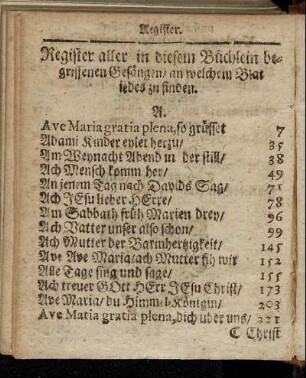 Register.
Register aller in diesem Büchlein be-
griffenen Gesängen/ an welchem Blat
iedes zu finden.
A.
Ave Maria gratia plena, so grüsset 7
Adami Kinder eylet herzu/ 35
Am Weynacht Abend in der still/ 38
Ach Mensch komm her/ 49
An jenem Tag nach Davids Sag/ 71
Ach JEsu lieber HErre/ 78
Am Sabbath früh Marien drey/ 96
Ach Vatter unser also schon/ 99
Ach Mutter der Barmhertzigkeit/ 145
Ave Ave Maria/ ach Mutter sih wir 152
Alle Tage sing und sage/ 155
Ach treuer GOtt HErr JEsu Christ/ 173
Ave Maria/ du Himm-l-Königin/ 203
Ave Maria gratia plena, dich über uns/ 221
C Christ